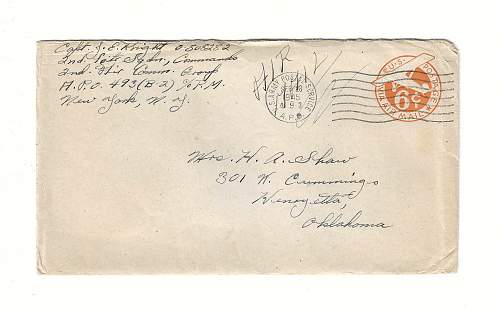 Capt. J. E. Knight O-505252
2nd Ftr Sqdn, Commando
2nd Air Comm. Group
A.P.O. 493 (B-2) % P.M.
New York, N.Y.
AIR
U.S. ARMY POSTAL SERVICE
A.P.O.
U.S. POSTAGE
6¢
VIA AIR MAIL
Mrs. H. A. Shaw
301 W. Cummings
Henryetta,
Oklahoma